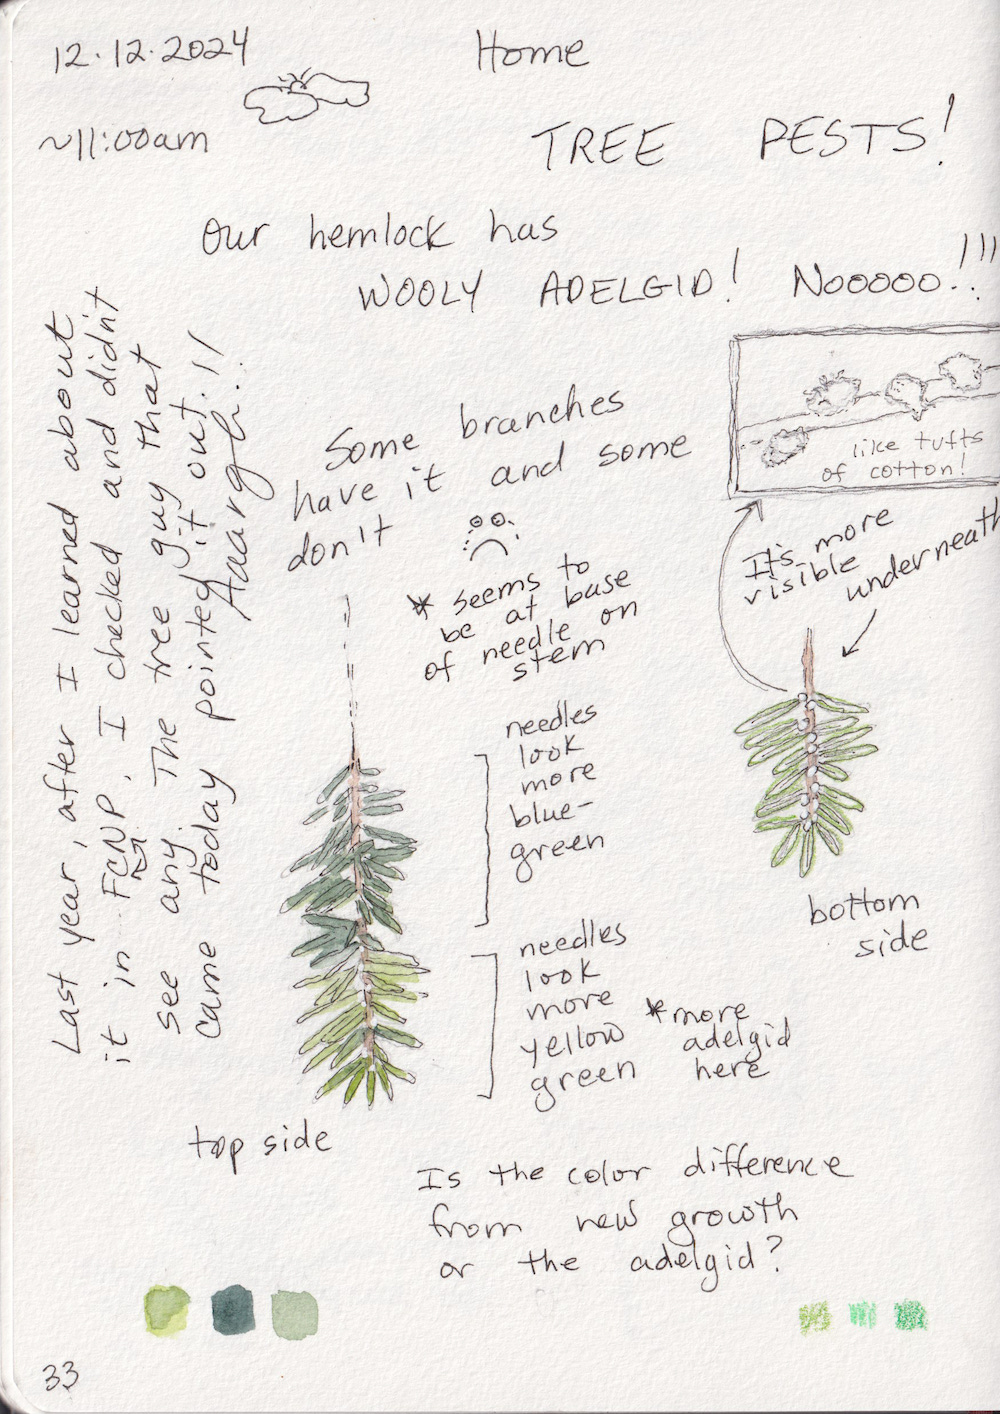 12.12.2024
Home
~11:00am
TREE PESTS!
Our hemlock has
WOOLY ADELGID! NOOOOO!!!!
Last year, after I learned about
it in FCNP, I checked and didn't
see any. The tree guy that
came today pointed it out!!
Aaargh!!
Some branches
have it and some
don't
* seems to
be at base
of needle on
stem
like tufts
of cotton!
It's more
visible
underneath
needles
look
more
blue-
green
bottom
side
needles
look
more
yellow
green
* more
adelgid
here
top side
Is the color difference
from new growth
or the adelgid?
33